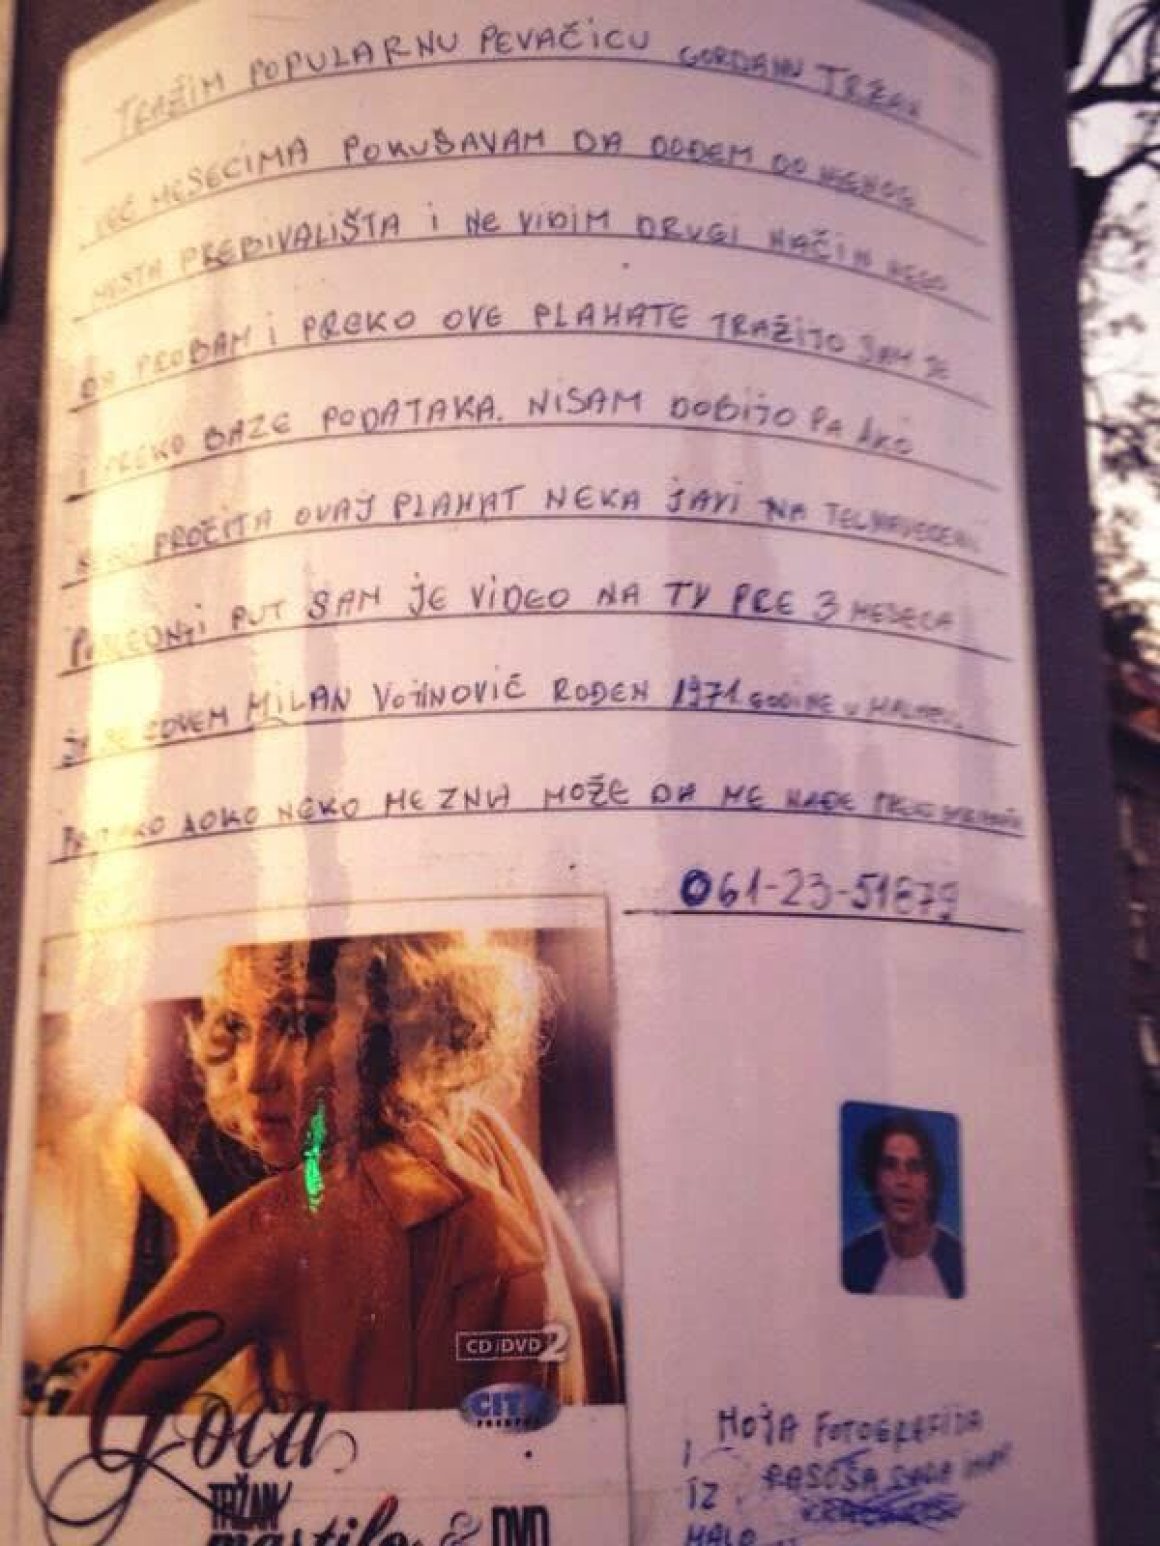 TRAŽIM POPULARNU PEVAČICU GORDANU TRŽAN
VEĆ MESECIMA POKUŠAVAM DA DOĐEM DO NJENOG
MESTA PREBIVALIŠTA I NE VIDIM DRUGI NAČIN NEGO
DA PROBAM I PREKO OVE PLAKATE TRAŽIJO SAM JE
I PREKO BAZE PODATAKA. NISAM DOBIJO PA AKO
PROČITA OVAJ PLAKAT NEKA JAVI NA TEL NAVEDENI
POSLEDNJI PUT SAM JE VIDEO NA TV PRE 3 MESECA
JA SE ZOVEM MILAN VOJINOVIĆ ROĐEN 1971 GODINE U
NEKO ME ZNA MOŽE DA ME NAĐE PREKO
061-23-51879
CD/DVD 2
CITY RECORDS
Goca
TRŽAN
mastilo & DVD
MOJA FOTOGRAFIJA
IZ PASOŠA SADA IMAM
MALO